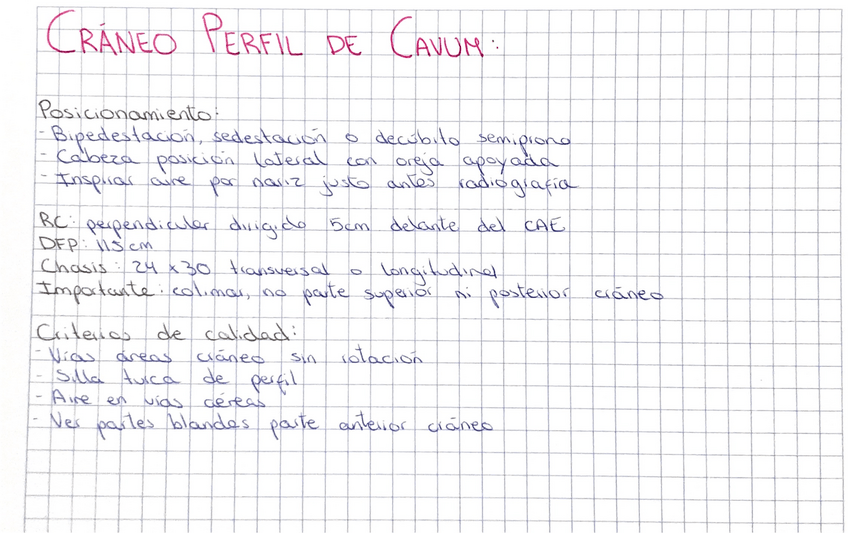 CRÁNEO PERFIL DE CAVUM:
Posicionamiento:
- Bipedestación, sedestación o decúbito semiprono
- Cabeza posición lateral con oreja apoyada
- Inspirar aire por nariz justo antes radiografía
RC: perpendicular dirigido 5cm delante del CAE
DFP: 115cm
Chasis: 24 x 30 transversal o longitudinal
Importante: colimar, no parte superior ni posterior cráneo
Criterios de calidad:
- Vías áreas cráneo sin rotación
- Silla turca de perfil
- Aire en vías aéreas
- Ver partes blandas parte anterior cráneo